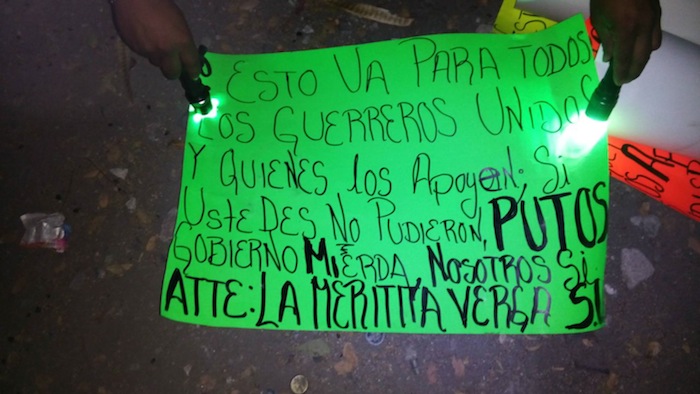 ESTO VA PARA TODOS
LOS GUERREROS UNIDOS
Y QUIENES LOS APOYEN; SI
USTEDES NO PUDIERON, PUTOS
GOBIERNO MIERDA, NOSOTROS SI.
ATTE: LA MERITITA VERGA S.I.